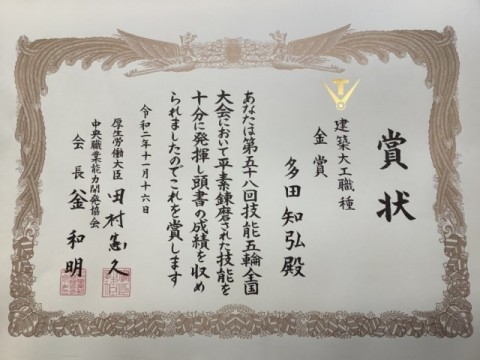 賞状
建築大工職種
金賞
多田知弘殿
あなたは第五十八回技能五輪全国
大会において平素錬磨された技能を
十分に発揮し頭書の成績を収め
られましたのでこれを賞します
令和二年十一月十六日
厚生労働大臣 田村憲久
中央職業能力開発協会
会長 釜和明